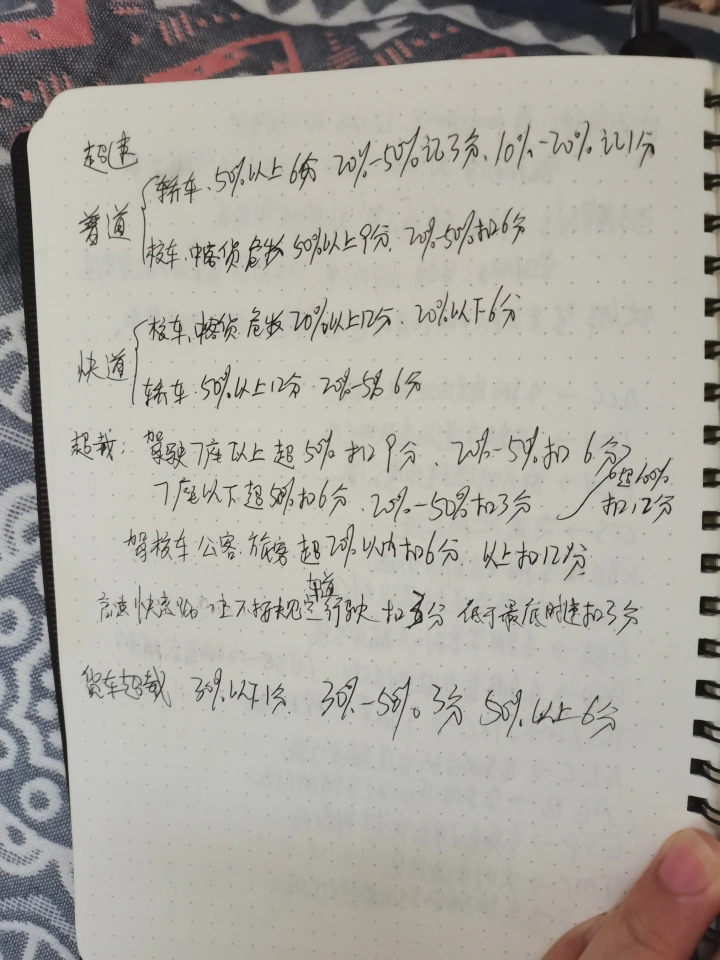 超速
轿车. 50%以上6分 20%-50%记3分、10%-20%记1分
普道
校车.中客货.危牧 50%以上9分. 20%-50%扣6分
校车、中客货.危牧 20%以上12分. 20%以下6分
快道
轿车. 50%以上12分. 20%-5% 6分
超载: 驾驶7座以上 超50%扣9分、20%-5%扣 6分
7座以下超50%扣6分. 20%-50%扣3分 超100%
扣12分
驾校车 公客. 旅客 超20%以内扣6分. 以上扣12分
车道
高速 快 上不按规定行驶 扣 分 低于最底时速扣3分
货车超载 30%以下1分. 30%-50% 3分 50%以上6分